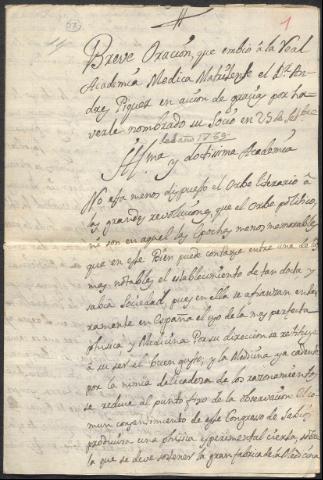 Breve Oracion, que embió á la Real
Academia Medica Matritense el Dr. An-
dres Piquer en accion de gracias por ha-
verle nombrado su Socio en 25 de
del año 1739
Illma. y doctissima Academia
No está menos dispuesto el Orbe literario á
las grandes revoluciones, que el Orbe politico,
ni son en aquel las Epochas menos memorables
que en este. Bien puede contarse entre una de las
mas notables el establecimiento de tan docta y
sabia Sociedad, pues en ella se afianzan entera
ramente en España el uso de la mas perfecta
phisica y Medicina. Por su direccion se restituye
á su ser el buen gusto, y la Medicina ya cadente
por la nimia delicadeza de los razonamientos
se reduce al punto fixo de la observacion. El co-
mun consentimiento de este Congreso de Sabios
producira una phisica experimental cierta, sobre
la que se deve sostener la gran fabrica de la Medicina